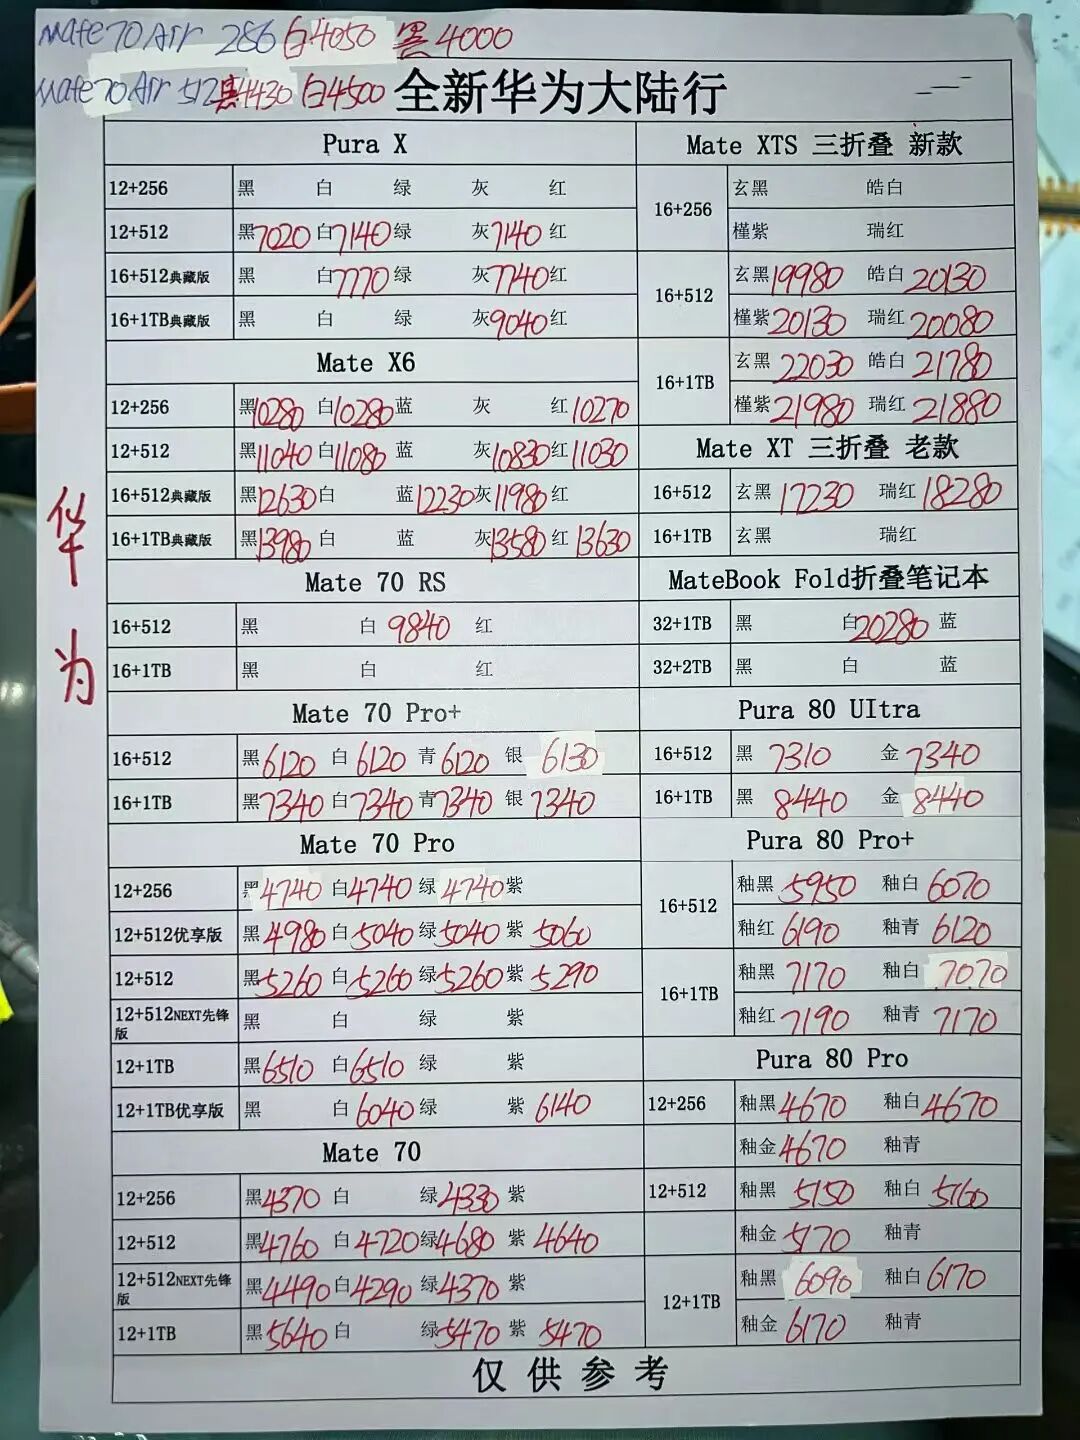 Mate70Air 286 白4050 黑4000
Mate70Air 512 黑4430 白4500
全新华为大陆行
华为
Pura X
12+256 黑 白 绿 灰 红
12+512 黑7020 白7140 绿 灰7140 红
16+512典藏版 黑 白7770 绿 灰7740 红
16+1TB典藏版 黑 白 绿 灰9040 红
Mate X6
12+256 黑10280 白10280 蓝 灰 红10270
12+512 黑11040 白11080 蓝 灰10830 红11030
16+512典藏版 黑12630 白 蓝12230 灰11980 红
16+1TB典藏版 黑13980 白 蓝 灰13580 红13630
Mate 70 RS
16+512 黑 白9840 红
16+1TB 黑 白 红
Mate 70 Pro+
16+512 黑6120 白6120 青6120 银6130
16+1TB 黑7340 白7340 青7340 银7340
Mate 70 Pro
12+256 黑4740 白4740 绿4740 紫
12+512优享版 黑4980 白5040 绿5040 紫5060
12+512 黑5260 白5260 绿5260 紫5290
12+512NEXT先锋版 黑 白 绿 紫
12+1TB 黑6510 白6510 绿 紫
12+1TB优享版 黑 白6040 绿 紫6140
Mate 70
12+256 黑4370 白 绿4330 紫
12+512 黑4760 白4720 绿4680 紫4640
12+512NEXT先锋版 黑4490 白4290 绿4370 紫
12+1TB 黑5640 白 绿5470 紫5470
Mate XTS 三折叠 新款
16+256 玄黑 皓白
槿紫 瑞红
16+512 玄黑19980 皓白20130
槿紫20130 瑞红20080
16+1TB 玄黑22030 皓白21780
槿紫21980 瑞红21880
Mate XT 三折叠 老款
16+512 玄黑17230 瑞红18280
16+1TB 玄黑 瑞红
MateBook Fold折叠笔记本
32+1TB 黑 白20280 蓝
32+2TB 黑 白 蓝
Pura 80 UItra
16+512 黑7310 金7340
16+1TB 黑8440 金8440
Pura 80 Pro+
16+512 釉黑5950 釉白6070
釉红6190 釉青6120
16+1TB 釉黑7170 釉白7070
釉红7190 釉青7170
Pura 80 Pro
12+256 釉黑4670 釉白4670
釉金4670 釉青
12+512 釉黑5150 釉白5160
釉金5170 釉青
12+1TB 釉黑6090 釉白6170
釉金6170 釉青
仅供参考